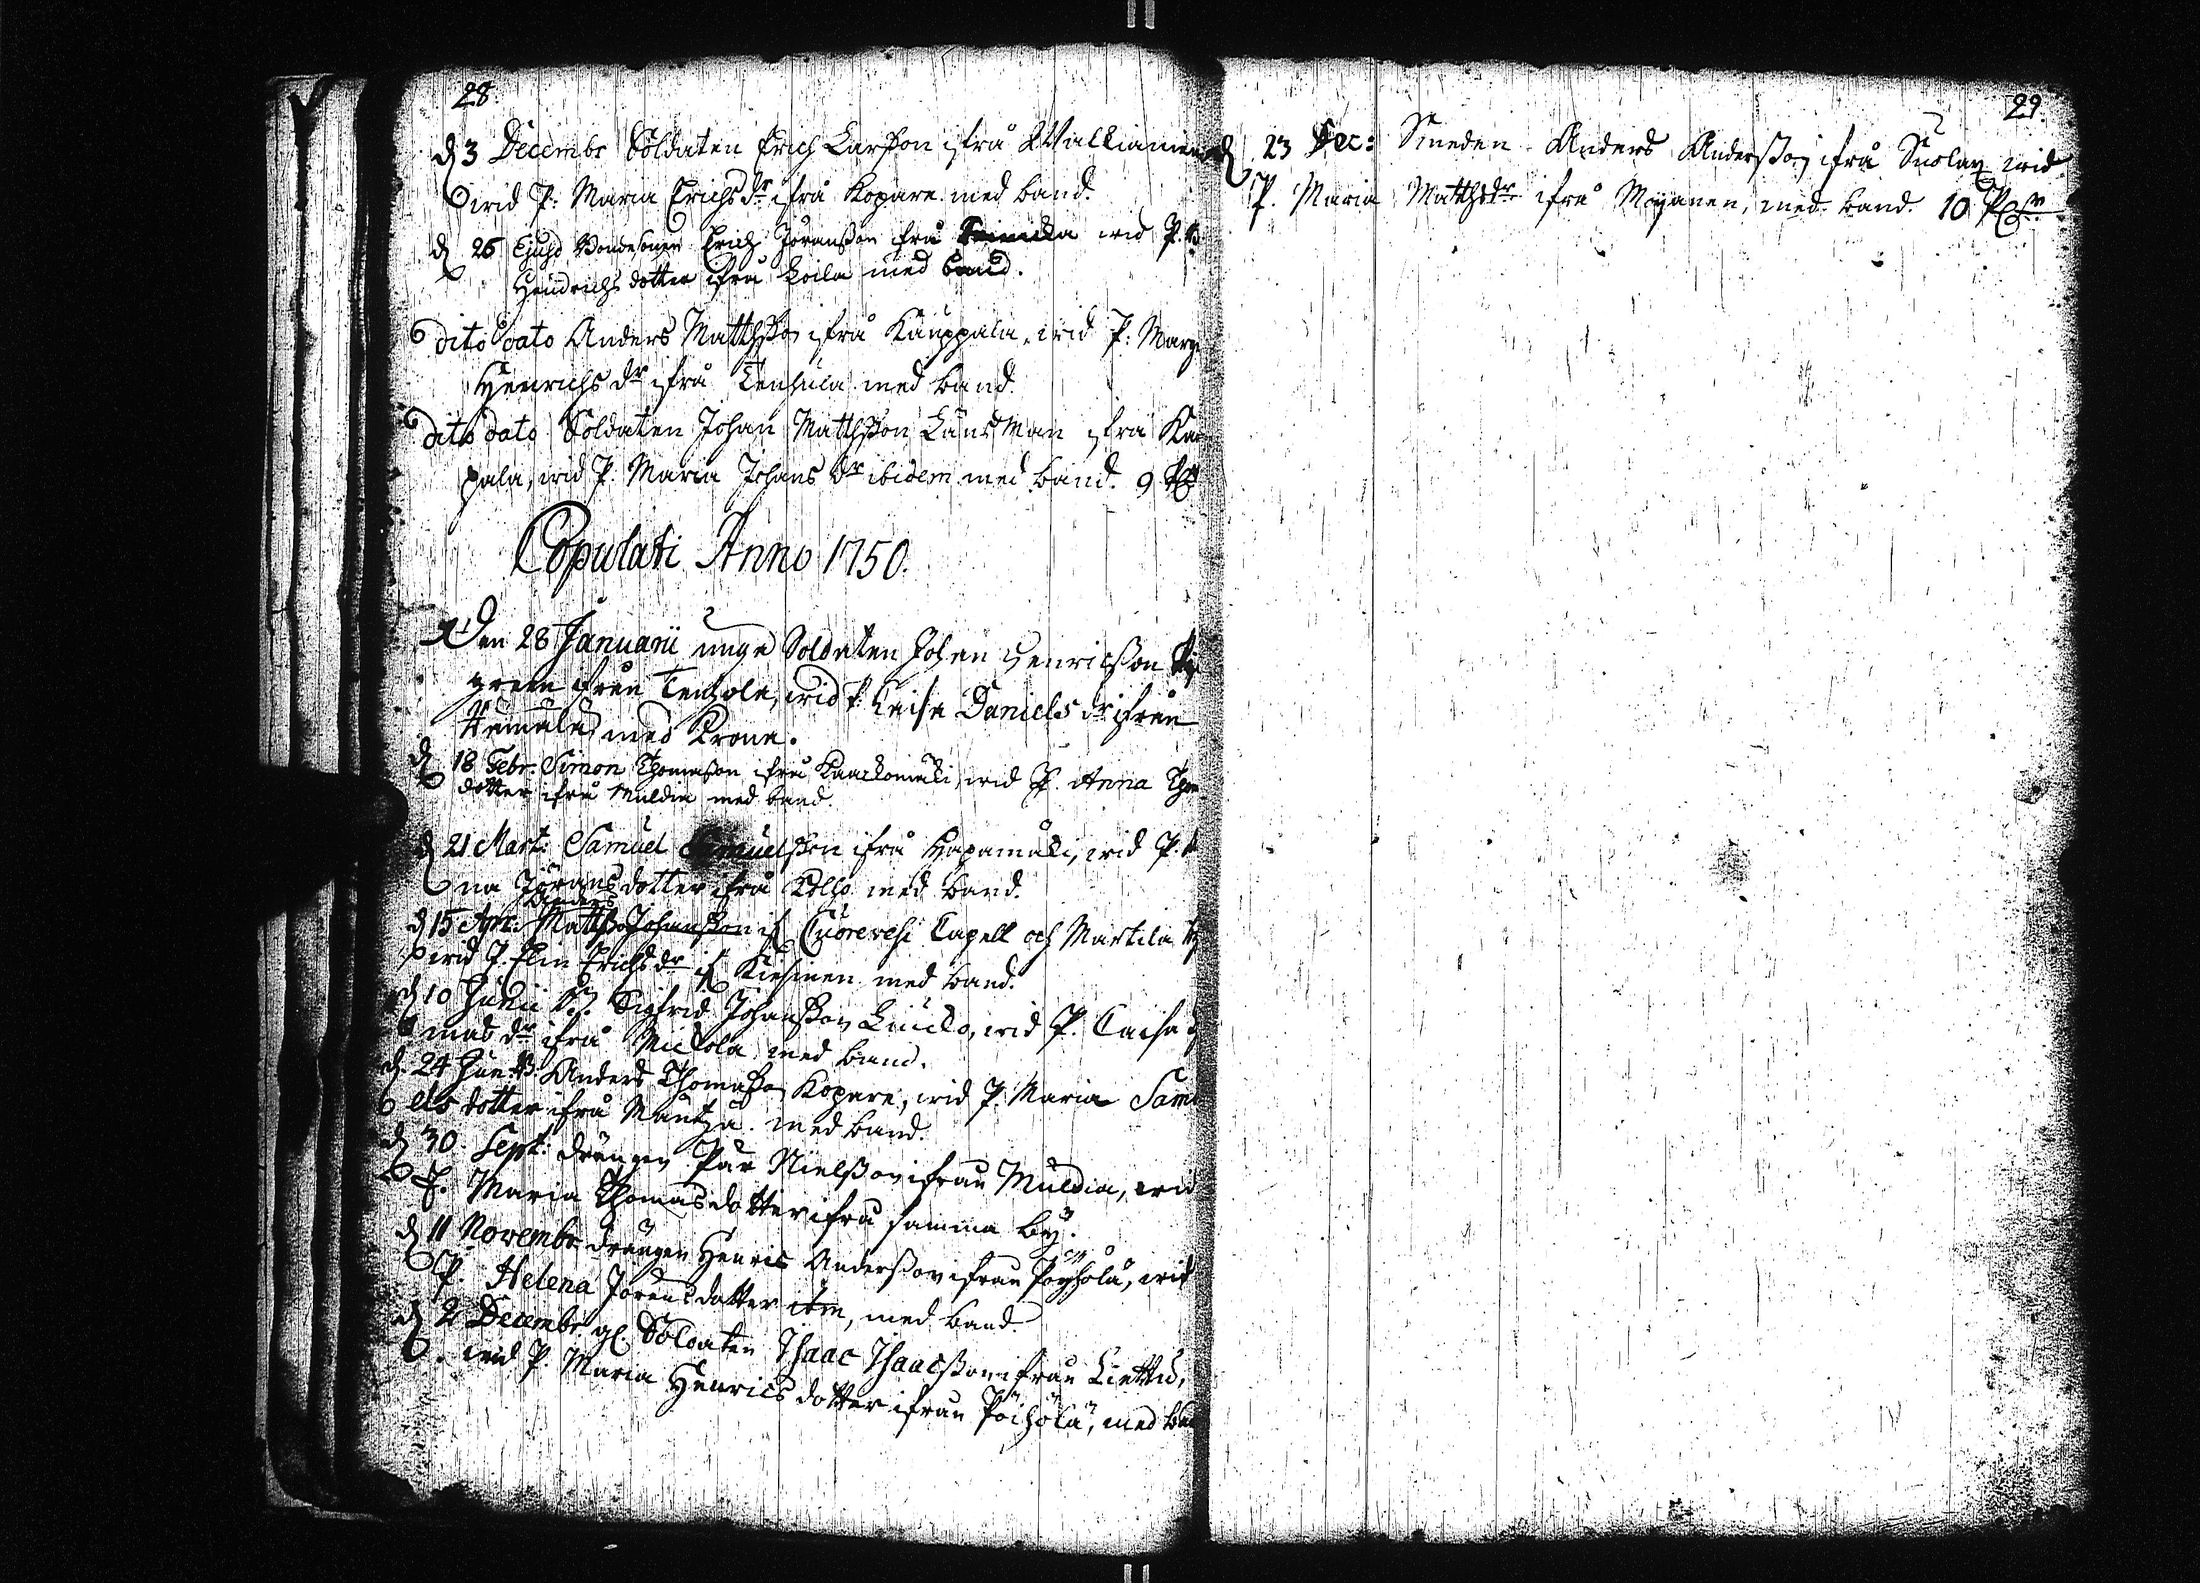 28.
d 3 Decembr Soldaten Erich Larsson ifrå Walkiamen
wid P: Maria Erichs dr ifrå Kopare med band.
d 26 Ejusd Bondesonen Erich Jöransson ifrå wid P.
Hendrichs dotter ifrå Koila med band.
dito dato Anders Matthsson ifrå Kauppala, wid P: Marg
Henrichs dr ifrå Tenhula med band.
dito dato Soldaten Johan Matthsson Länsman ifrå Kau
pala, wid P. Maria Johans dr ibidem med band. 9
Copulati Anno 1750.
Den 28 Januarii unge Soldaten Johan Henricsson
green ifrån Tenhola, wid P. Caisa Daniels dr ifrån
med Krona.
d 18 Febr. Simon Thomasson ifrå Kaackomäki, wid P. Anna Thom
dotter ifrå Muldia med band.
d 21 Mart: Samuel Samuelsson ifrå Hapamäki, wid P.
na Jöransdotter ifrå Kollo med band.
Anders
d 15 Apr: Mattsson Johansson if Cuorevesi Capell och Martila
wid P. Elin Erichs dr if Kiesinen med band.
d 10 Junii Sigfrid Johansson Linclo, wid P. Caisa
mas dr ifrå Nickola med band.
d. 24 Jun. Anders Thomasson Kopare, wid P. Maria Samu
els dotter ifrå Mäntzä med band.
d 30 Sept: drängen Pär Nielsson ifrån Muldia, wid
P. Maria Thomasdotter ifrå samma by.
d 11 Novembr drängen Henric Andersson ifrån Pöyhölä, wid
P. Helena Jöransdotter ibm, med band.
d 2 Decembr gl. Soldaten Isaac Isaacsson ifrån Liettu,
wid P. Maria Henrics dotter ifrån Pöihölä, med ban
29.
d 23 Dec: Smeden Anders Andersson ifrå Suolax wid
P. Maria Matths dr ifrå Moyanen, med band. 10 Par